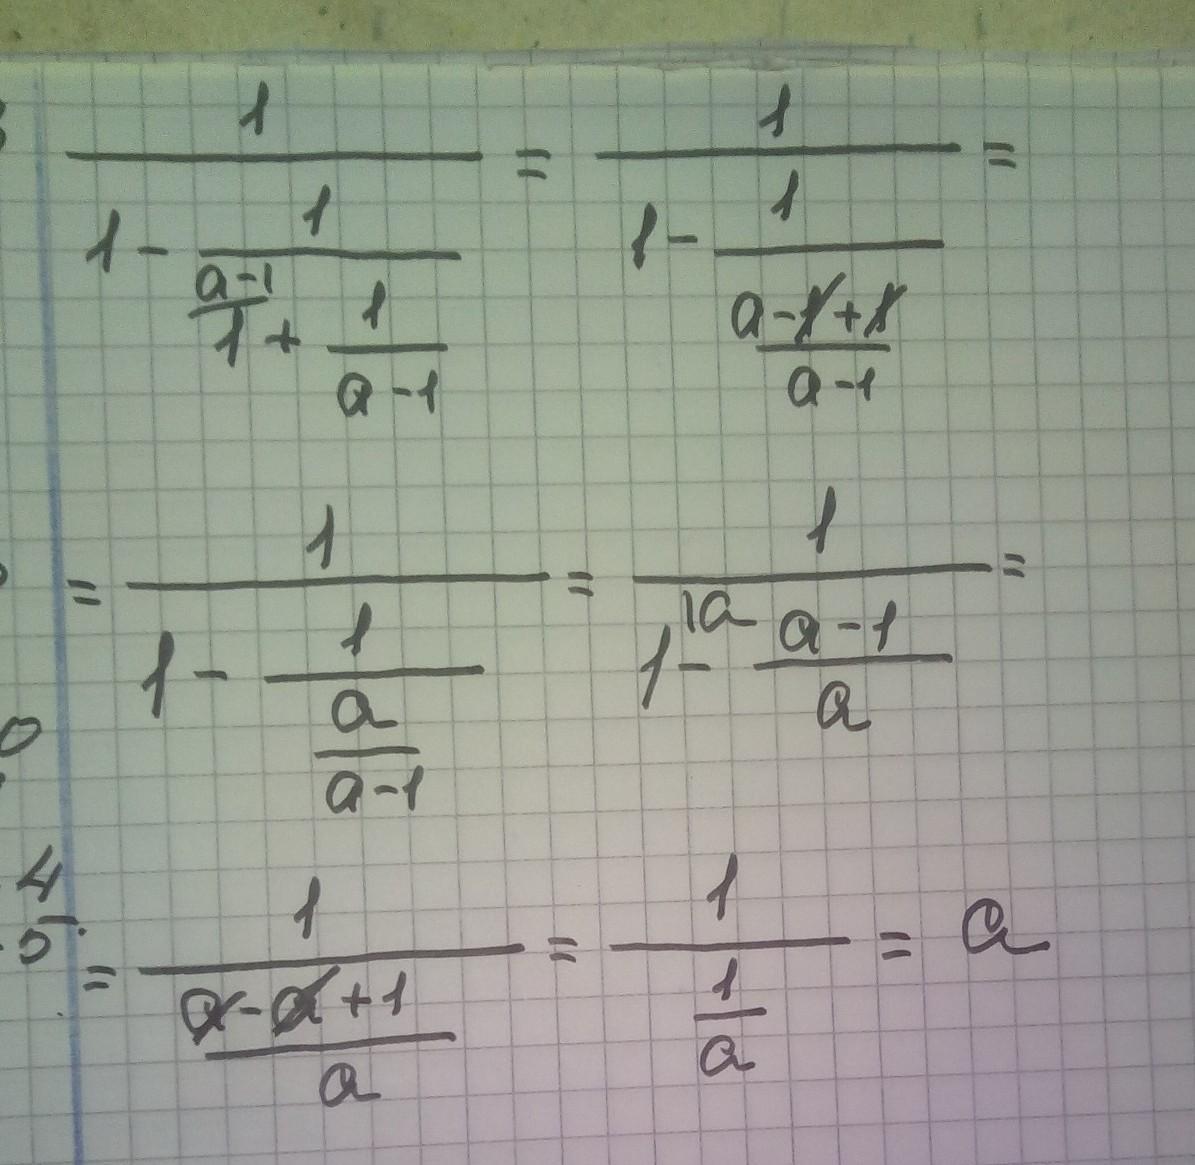 1/(1 - 1/(1^{a-1} + 1/(a-1))) = 1/(1 - 1/((a-1+1)/(a-1))) =
= 1/(1 - 1/(a/(a-1))) = 1/(1^{\a} - (a-1)/a) =
= 1/((a-a+1)/a) = 1/(1/a) = a
4
5